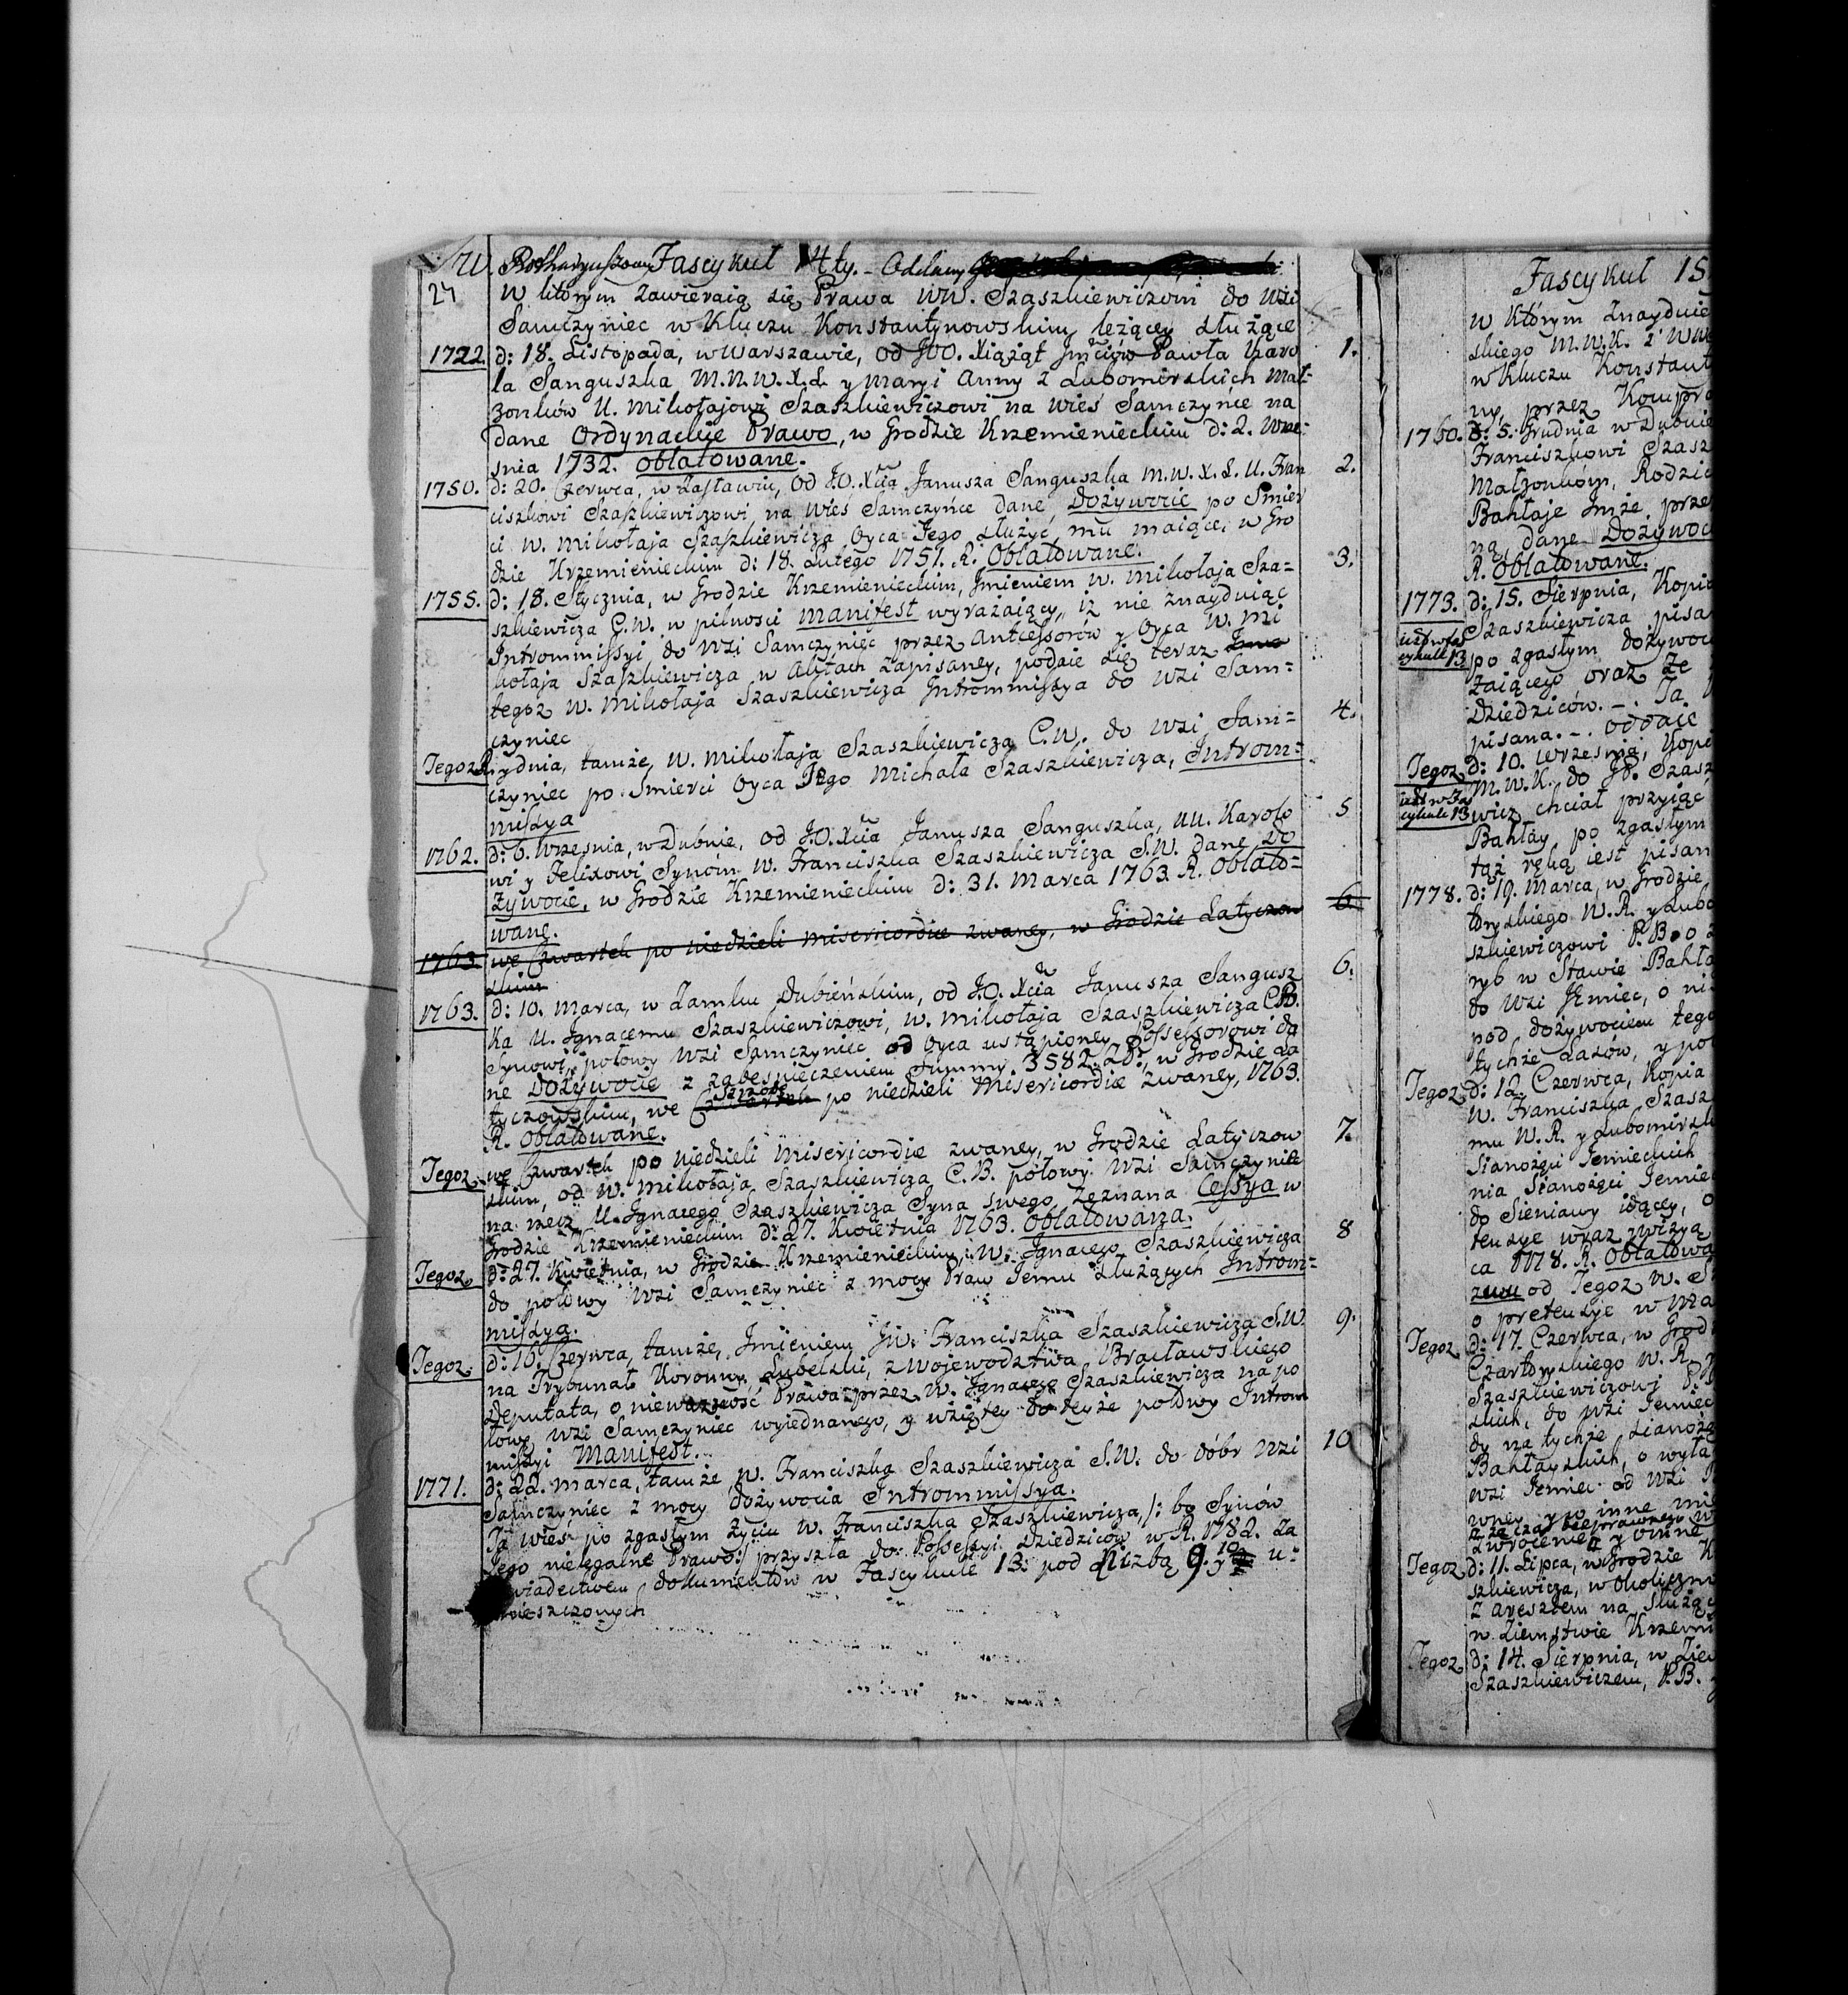 Fascykuł 14ty. Oddany
24
w którym zawieraią się Prawa WW. Szaszkiewiczóm do wśi
Samczyniec w Kluczu Konstantynowskim leżącey służące
1722. d: 18. Listopada, w Warszawie, od JOO. Xiążąt Jmciów Pawła Karo 1.
la Sanguszka M.N.W.X.L. y Maryi Anny z Lubomirskich Mał:
żonków U. Mikołajowi Szaszkiewiczowi na wieś Samczynce na
dane Ordynackie Prawo, w Grodzie Krzemienieckim d: 2. Wrze:
śnia 1732. oblatowane.
1750. d: 20. Czerwca, w Zasławiu, od J.O. Xcia Janusza Sanguszka M.W.X.L. U. Fran 2.
ciszkowi Szaszkiewiczowi na wieś Samczyńce dane Dożywocie po Smier
ci W. Mikołaja Szaszkiewicza Oyca Jego służyć mu maiące, w Gro
dzie Krzemienieckim d: 18. Lutego 1751. R. Oblatowane.
1755. d: 18. Stycznia, w Grodzie Krzemienieckim, Jmieniem W. Mikołaja Sza= 3.
szkiewicza C.W. w pilności Manifest wyrażaiący, iż nie znayduiąc
Intrommissyi do wśi Samczyniec przez Antecessorów y Oyca W. Mi
kołaja Szaszkiewicza w Aktach zapisaney, podaie się teraz
tegoż W. Mikołaja Szaszkiewicza Intrommissya do wśi Sam=
czyniec
Tegoż R. y dnia, tamże, W. Mikołaja Szaszkiewicza C.W. do wśi Sam= 4.
czyniec po Smierci Oyca Jego Michała Szaszkiewicza, Introm=
missya
1762. d: 6. Września, w Dubnie, od J.O. Xcia Janusza Sanguszka, UU. Karolo 5
wi y Felixowi Synóm W. Franciszka Szaszkiewicza S.W. dane Do
żywocie, w Grodzie Krzemienieckim d: 31. Marca 1763 R. Oblato=
wane.
1763 we Czwartek po niedzieli Misericordiæ zwaney, w Grodzie Latyczow 6.
skim
1763. d: 10. Marca, w Zamku Dubieńskim, od J.O. Xcia Janusza Sangusz 6.
ka U. Ignacemu Szaszkiewiczowi, W. Mikołaja Szaszkiewicza C.B.
Synowi, połowy wśi Samczyniec od Oyca ustąpioney Possessorowi da
ne Dożywocie z zabespieczeniem Summy 3582. 28:, w Grodzie La
tyczowskim, we po niedzieli Misericordiæ zwaney, 1763.
R. Oblatowane.
Tegoż we Czwartek po niedzieli Misericordiæ zwaney, w Grodzie Latyczow 7.
skim, od W. Mikołaja Szaszkiewicza C.B. połowy wśi Samczyniec
na rzecz U. Ignacego Szaszkiewicza Syna swego zeznana Cessya w
Grodzie Krzemienieckim d: 27. Kwietnia 1763. Oblatowana.
Tegoż d: 27. Kwietnia, w Grodzie Krzemienieckim, W: Ignacego Szaszkiewicza 8
do połowy wśi Samczyniec z mocy Praw Jemu służących Introm=
missya.
Tegoż. d: 16. Czerwca, tamże, Jmieniem JW. Franciszka Szaszkiewicza S.W. 9.
na Trybunał Koronny Lubelski, z Wojewodztwa Bracławskiego
Deputata, o nieważność Prawa przez W. Ignacego Szaszkiewicza na po
łowę wśi Samczyniec wyiednanego, y wziętey do teyże połowy Introm
missyi Manifest.
1771. d: 22. Marca, tamże, W. Franciszka Szaszkiewicza S.W. do dóbr wśi 10
Samczyniec z mocy dożywocia Intrommissya.
Ta wieś po zgasłym życiu W. Franciszka Szaszkiewicza, /: bo Synów
Jego nielegalne Prawo :/ przyszła do Possessyi Dziedziców w R. 1782. Za
świadectwem dokumentów w Fascykule 13. pod Liczbą 9. y 10 u=
mieszczonych
Fascykuł 15
w którym znayduie
skiego M.W.K. i WW
w Kluczu Konstant
ny, przez Kompro
1750. d: 5. Grudnia w Dubnie
Franciszkowi Szasz
Małżonkóm, Rodzic
Bahłaje Jmże prze
ną, dane Dożywoc
R. Oblatowane.
1773. d: 15. Sierpnia, Kopia
Szaszkiewicza pisa
po zgasłym dożywoc
żaiącego oraz że
Dziedziców. Ta
pisana. oddaie
Tegoż d: 10. Września, Kopi
M.W.K. do JP. Szasz
wicz chciał przyiąć
Bahłay po zgasłym
taż ręką iest pisan
1778. d: 19. Marca, w Grodzie
toryskiego W.R. y Lubo
szkiewiczowi P.B. o
ryb w Stawie Bahła
do wśi Jemiec, o ni
pod dożywociem tego
tychże Lasów, y po
Tegoż d: 12. Czerwca, Kopia
W. Franciszka Szasz
mu W.R. y Lubomirsk
Sianożęci Jemieckich
nia Sianożęci Jemie
do Sieniawy idącey, o
tensye wraz
ca 1778. R. Oblatowa
od Tegoż W.
o pretensye w
Tegoż d: 17. Czerwca, w Grod
Czartoryskiego W.R.
Szaszkiewiczowi P.
skich, do wśi Jemiec
dy na tychże Sianożę
Bahłayskich, o wyła
wśi Jemiec od wśi
wney y o inne
Tegoż d: 11. Lipca, w Grodzie K
szkiewicza, w okoliczn
z aresztem na służą
w Ziemstwie Krzem
Tegoż d: 14. Sierpnia, w Ziem
Szaszkiewiczem, P.B.